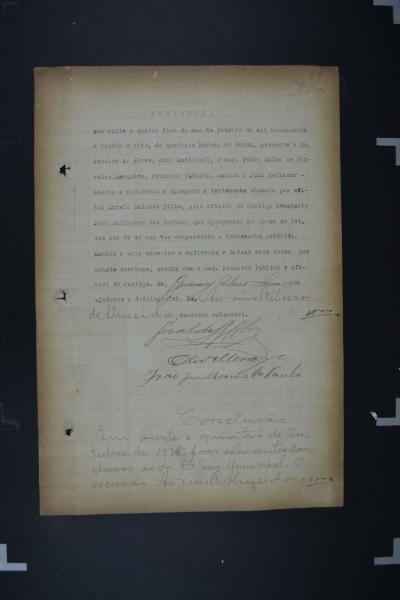 AUDIENCIA
Aos vinte e quatro dias do mez de Outubro de mil novecentos
e trinta e oito, ás quatorze horas, no Forum, presente o Dr.
Geraldo F. Alves, Juiz Municipal, o snp. Pedro Sales de Oli-
veira Mesquita, Promotor Publico, mandou o Juiz declarar
aberta a audiencia e apregoar a testemunha chamada por edi-
tal Antonio Andrade Filho, pelo oficial de Justiça Semanario
João Guilherme dos Santos, que apregoando na forma da lei,
deu sua fé de não ter comparecido a testemunha referida.
Mandou o Juiz encerrar a audiencia e lavrar este termo, que
achado conforme, assina com o snp. Promotor Publico e ofi-
cial de Justiça. Eu,
ajudante o datilografei. Eu, Ribeiro
de Almeida, escrivão subscrevi.
João Guilherme dos Santos
Conclusão
Em vinte e quatro de Ou-
tubro de faço estes autos con-
clusos ao Dr. Juiz Municipal. O
escrivão, R. Almeida